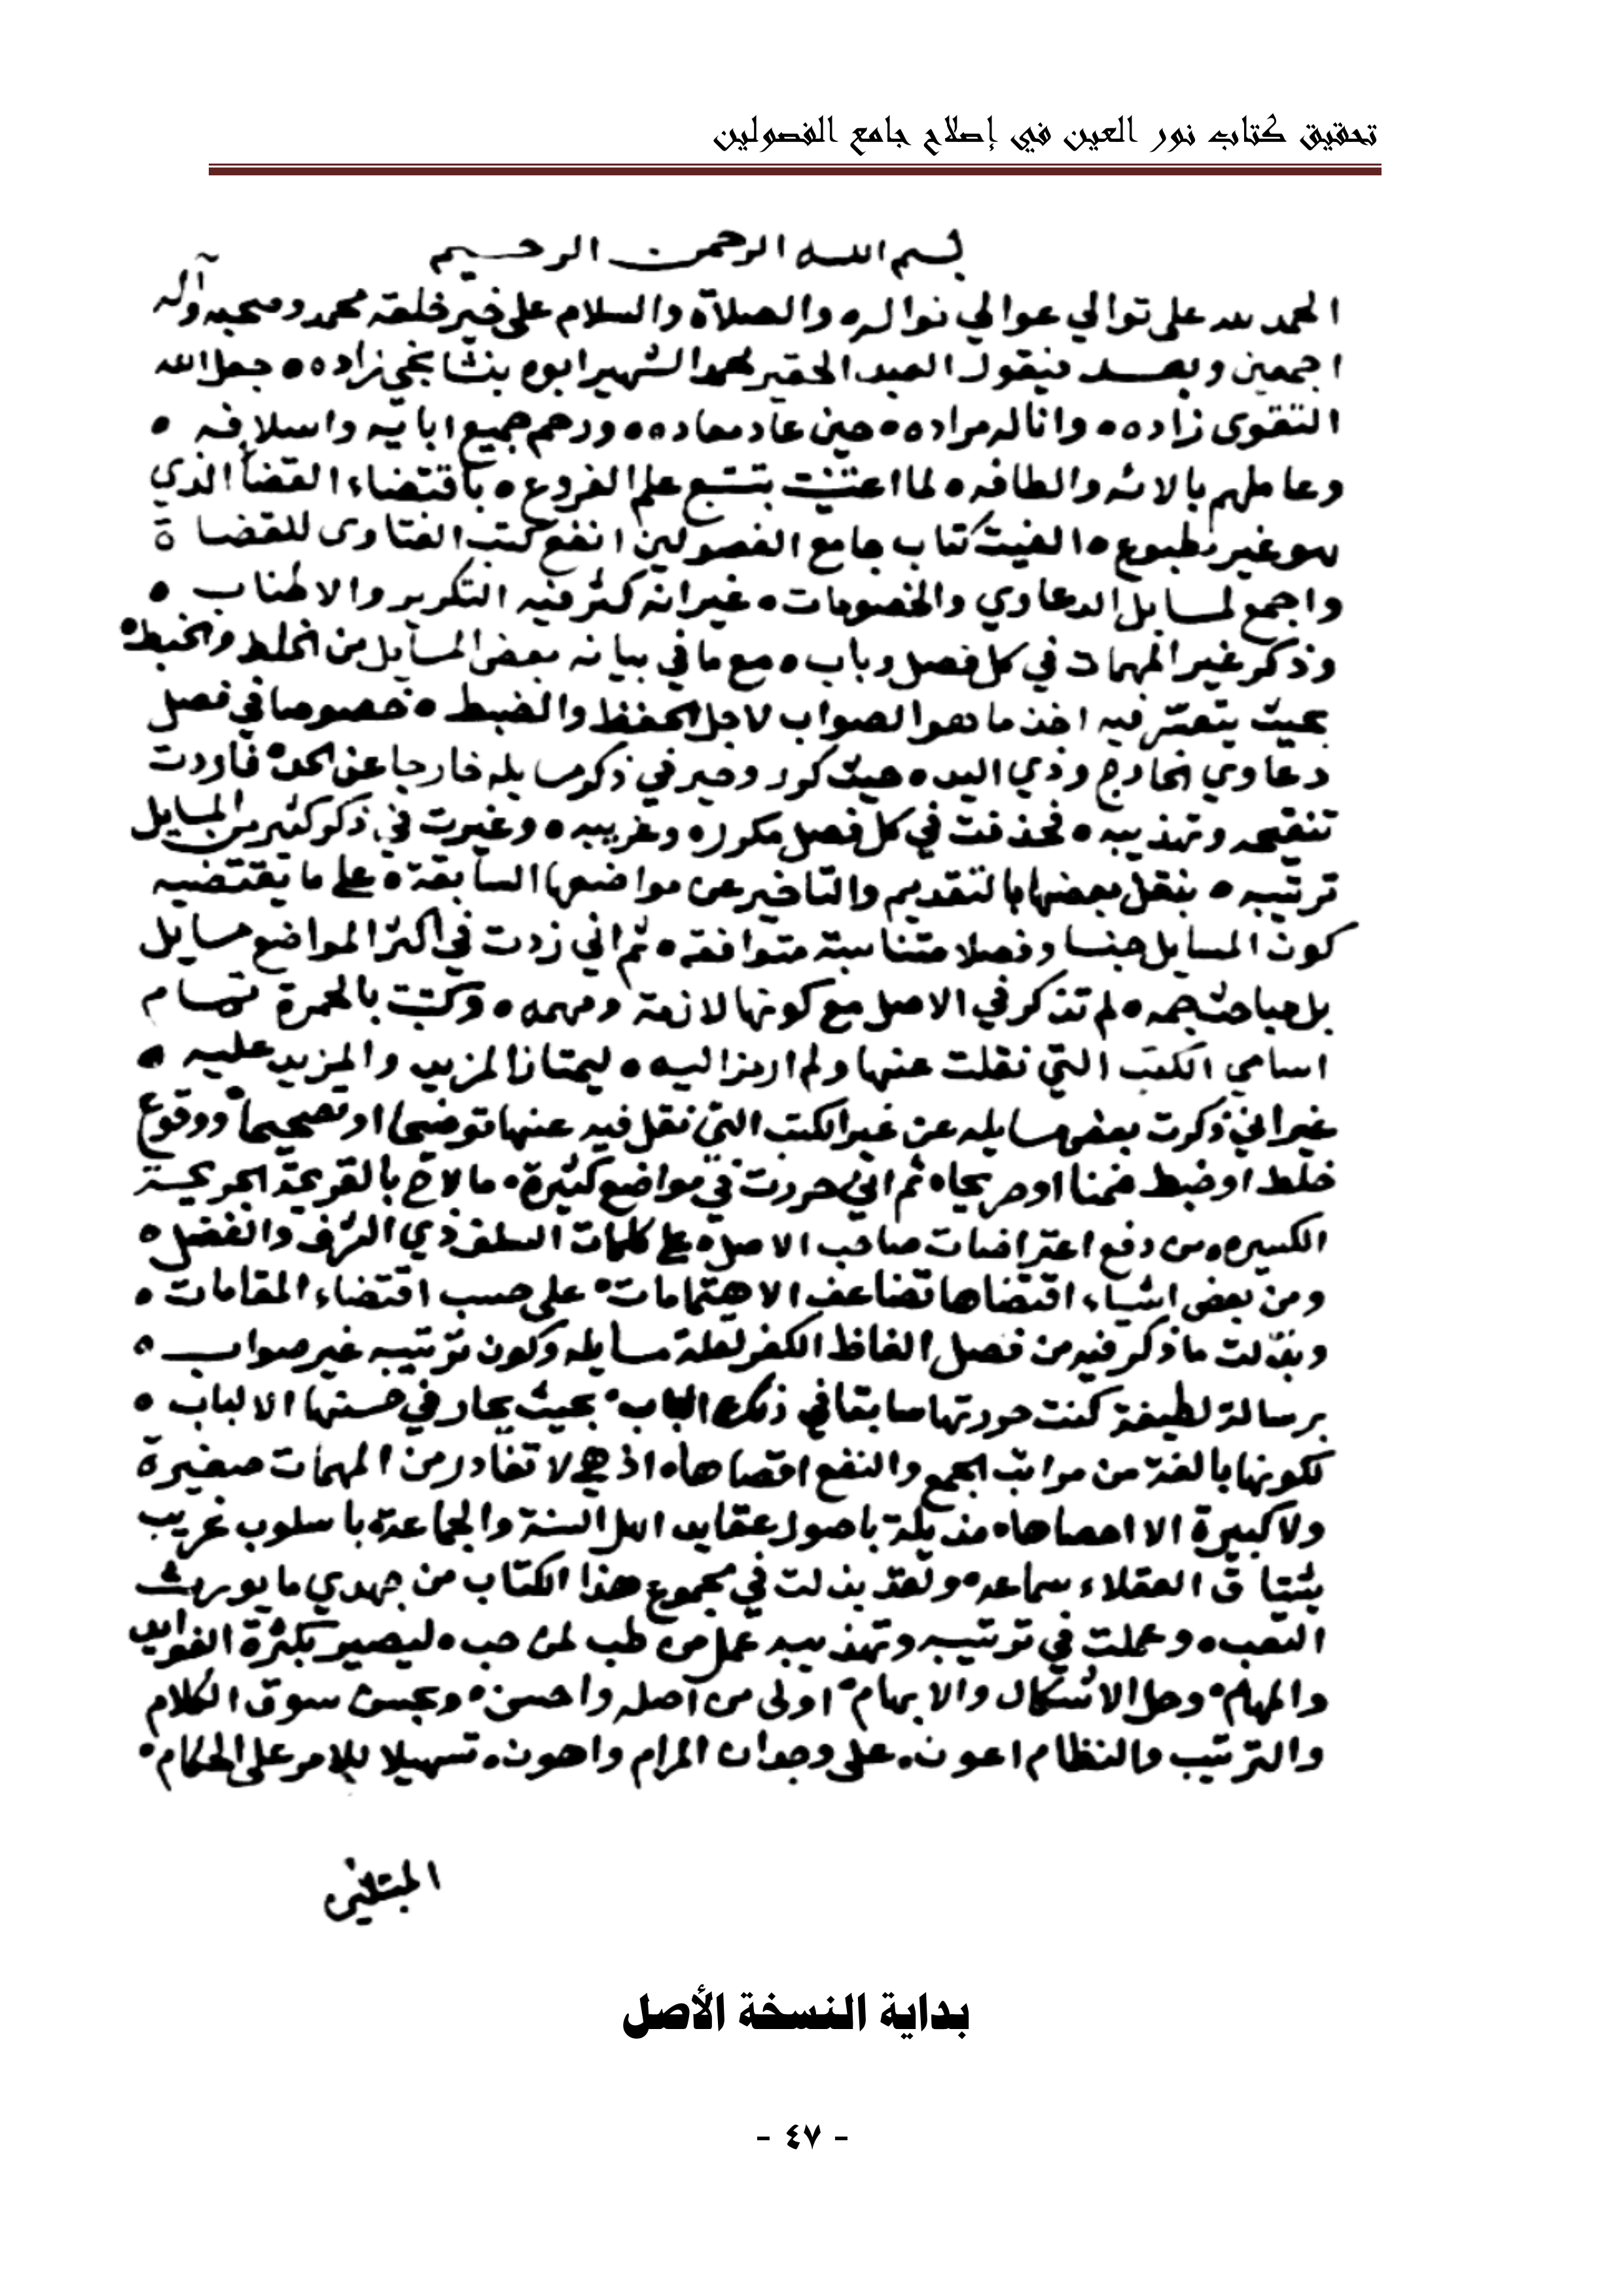 تحقيق كتاب نور العين في إصلاح جامع الفصولين
بسم الله الرحمن الرحيم
الحمد لله على توالي عوالي نواله والصلاة والسلام على خير خلقه محمد وصحبه وآله
اجمعين وبعد فيقول العبد الحقير محمد الشهير ابوه بنشانجي زاده ٥ جعل الله
التقوى زاده ٥ وانا له مراده ٥ حين عاد معاده ٥٥ ورحم جميع ابايه واسلافه ٥
وعاملهم بالائه والطافه ٥ لما اعتنيت بتتبع علم الفروع ٥ باقتضاء القضأ الذي
هو غير مطبوع ٥ الفيت كتاب جامع الفصولين انفع كتب الفتاوى للقضاة
واجمع لمسايل الدعاوي والخصومات ٥ غير انه كثر فيه التكرير والاطناب ٥
وذكر غير المهمات في كل فصل وباب ٥ مع ما في بيانه بعض المسايل من الخلط والخبط ٥
بحيث يتعسر فيه اخذ ما هو الصواب لاجل الحفظ والضبط ٥ خصوصا في فصل
دعاوي الخارج وذي اليد ٥ حيث كرر وحير في ذكر مسايله خارجا عن الحد ٥ فاردت
تنقيحه وتهذيبه ٥ فحذفت في كل فصل مكرره وغريبه ٥ وغيرت في ذكر كثير من المسايل
ترتيبه ٥ بنقل بعضها بالتقديم والتاخير عن مواضعها السابقة ٥ على ما يقتضيه
كون المسايل جنسا وفصلا متناسبة متوافقه ٥ ثم اني زدت في اكثر المواضع مسايل
بل مباحث جمه ٥ لم تذكر في الاصل مع كونها لازمة ومهمه ٥ وكتبت بالحمرة تمام
اسامي الكتب التي نقلت عنها ولم ارمز اليه ٥ ليمتاز المزيد والمزيد عليه ٥
غير اني ذكرت بعض مسايله عن غير الكتب التي نقل فيه عنها توضيحا او تصحيحا ٥ ووقوع
خلط او خبط ضمنا او صريحا ٥ ثم اني حررت في مواضع كثيرة ٥ ما لاح بالقريحة الجريحة
الكسيره ٥ من دفع اعتراضات صاحب الاصل ٥ على كلمات السلف ذي الشرف والفضل ٥
ومن بعض اشياء اقتضاها تضاعف الاهتمامات ٥ على حسب اقتضاء المقامات ٥
وبدّلت ما ذكر فيه من فصل الفاظ الكفر لقلة مسايله وكون ترتيبه غير صواب ٥
برسالة لطيفة كنت حررتها سابقا في ذلك الباب ٥ بحيث يحار في حسنها الالباب ٥
لكونها بالغة من مراتب الجمع والنفع اقصاها ٥ اذ هي لا تغادر من المهمات صغيرة
ولا كبيرة الا احصاها ٥ مذيلة باصول عقايد اهل السنة والجماعة ٥ باسلوب غريب
يشتاق العقلاء سماعه ٥ ولقد بذلت في مجموع هذا الكتاب من جهدي ما يورث
التعب ٥ وعملت في ترتيبه وتهذيبه عمل من طب لمن حب ٥ ليصير بكثرة الفوايد
والمهام ٥ وحل الاشكال والابهام ٥ اولى من اصله واحسن ٥ وبحسن سوق الكلام
والترتيب والنظام اعون ٥ على وجدان المرام واهون ٥ تسهيلا للامر على الحكام ٥
المبتلين
بداية النسخة الأصل
- ٤٧ -